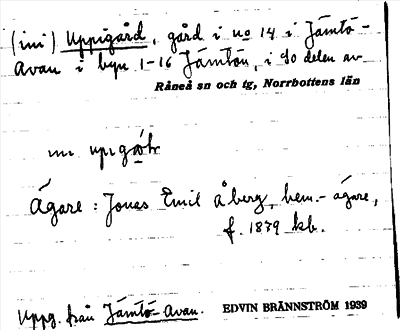 (ini) Uppigård, gård i no 14 i Jämtö-
Avan i byn 1-16 Jämtön, i sö delen av
Råneå sn och tg, Norrbottens län
Ägare: Jonas Emil Åberg, hem.-ägare,
f. 1879 kb.
Uppg. från Jämtö-Avan. EDVIN BRÄNNSTRÖM 1939